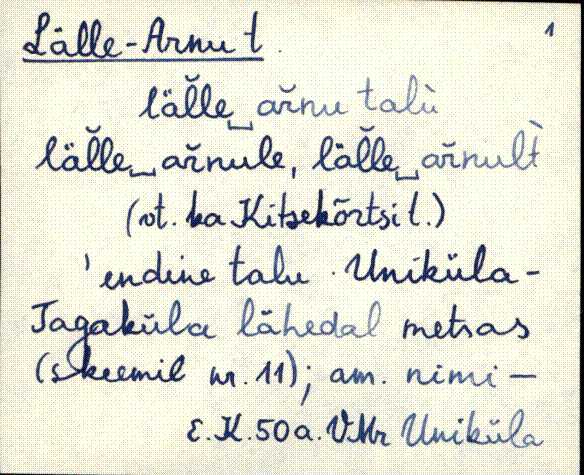 Lälle-Arnu t. 1
läl̆le‿ar̆nu talù
läl̆le‿ar̆nule, läl̆le‿ar̆nult̀
(vt. ka Kitsekõrtsi t.)
'endine talu Uniküla-
Jagaküla lähedal metsas
(skeemil nr. 11); am. nimi –
E.K. 50 a. VMr Uniküla